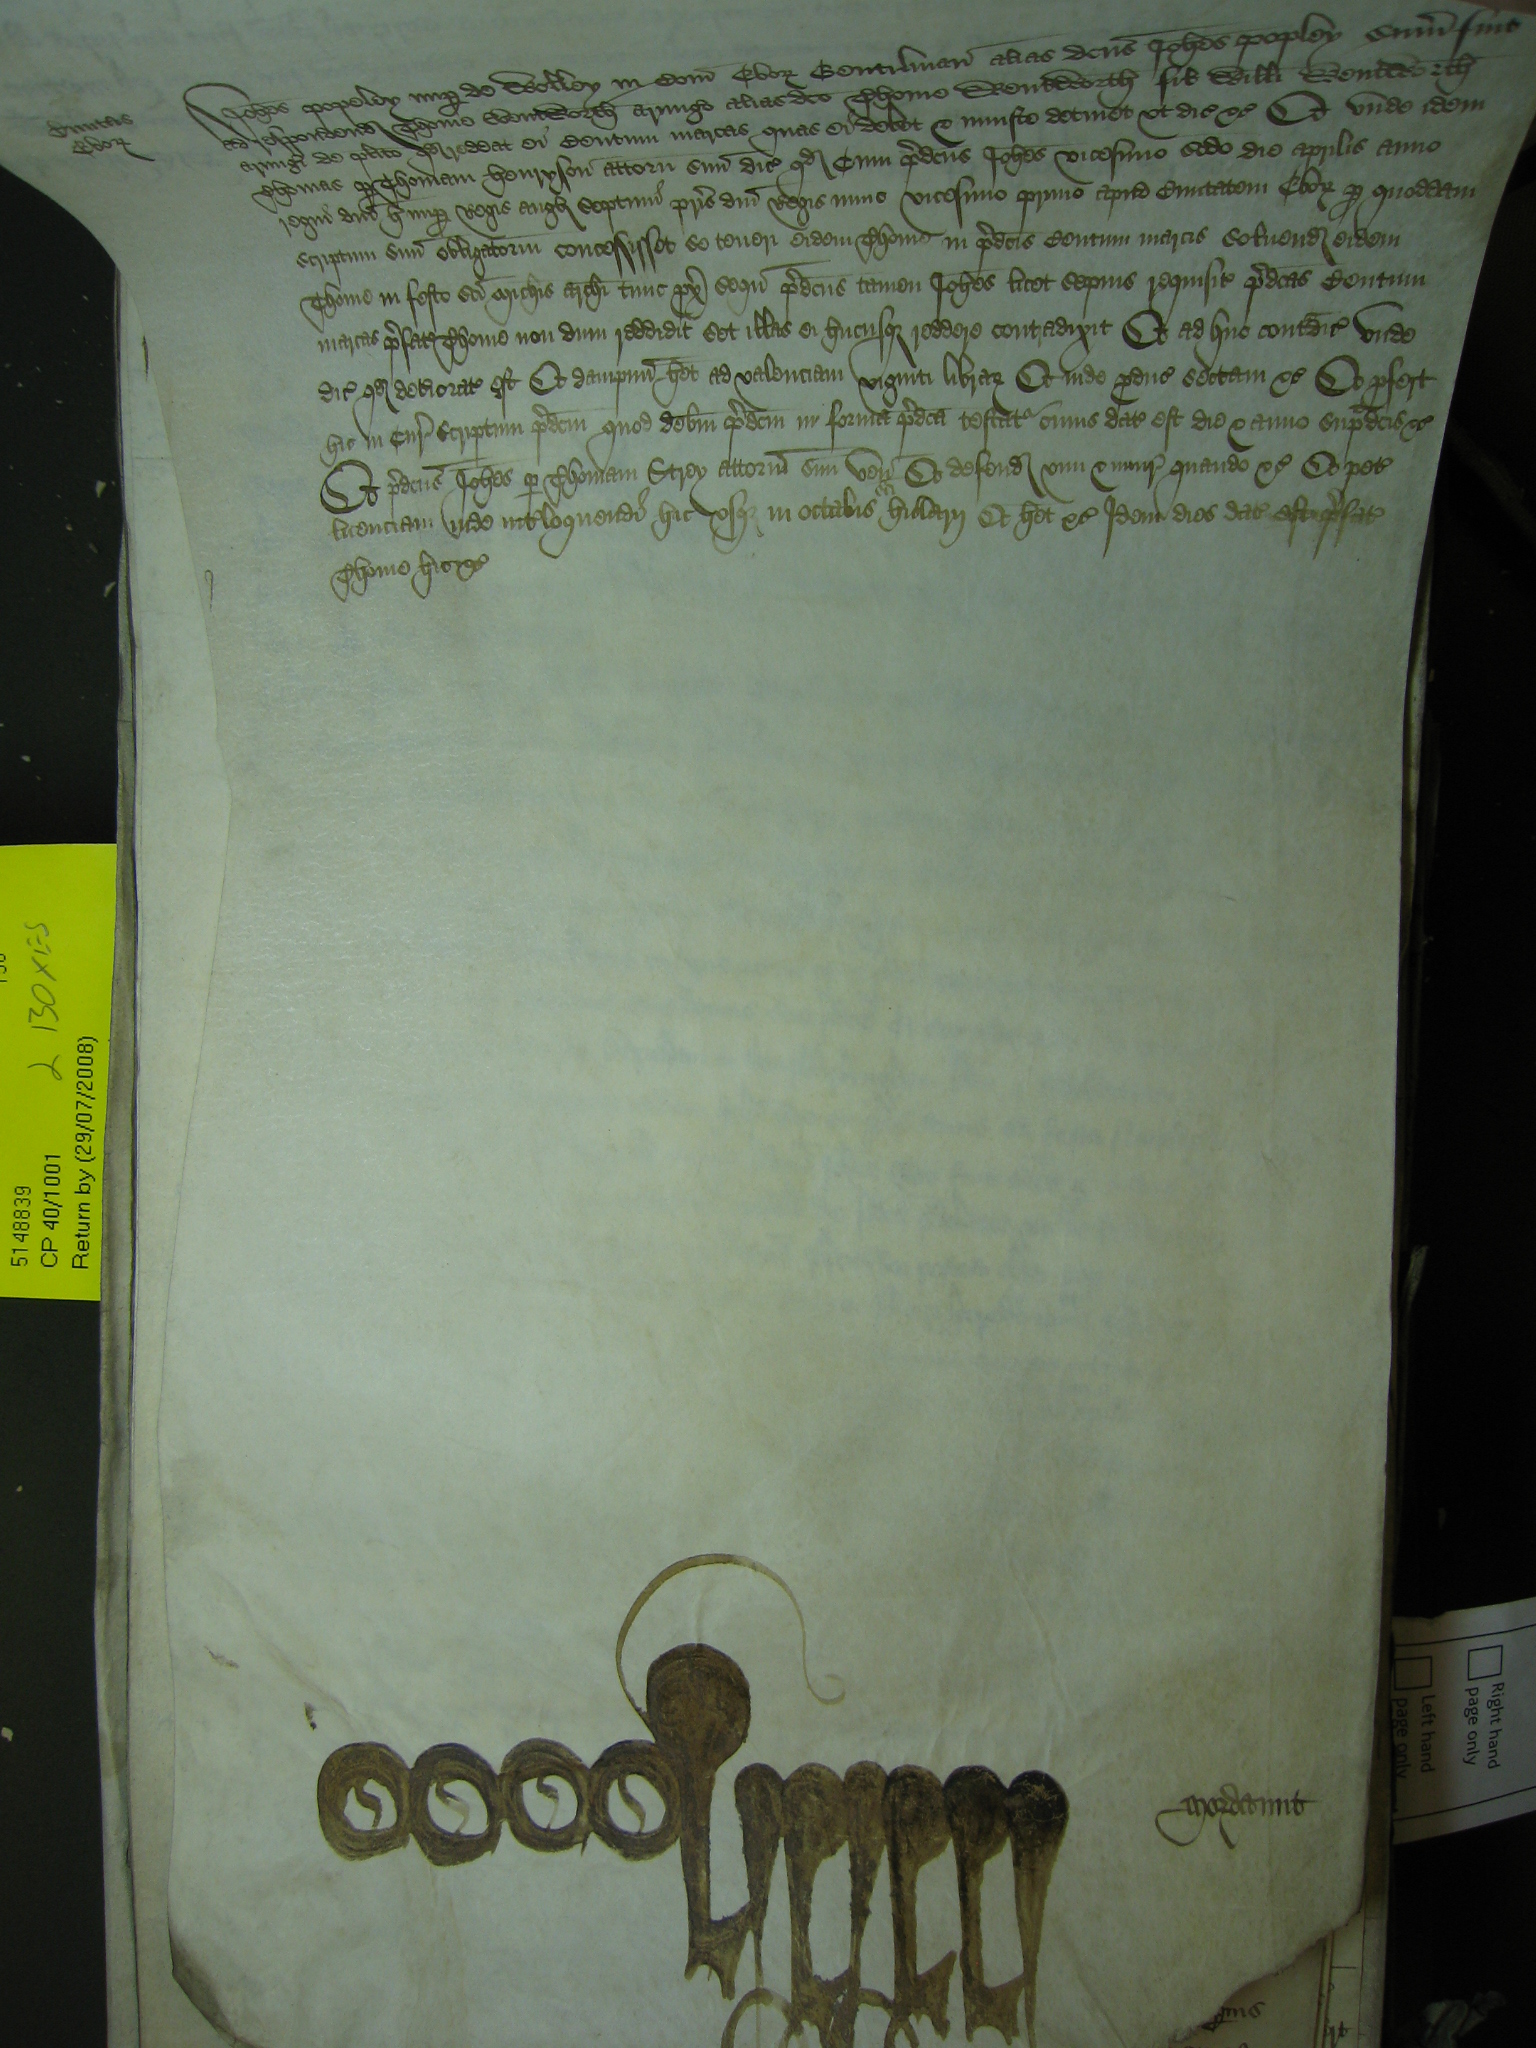 Civitas
Ebor
Joħes Popeley nup de Wolley in Com Ebor Gentilman alias dcus Joħes Popley sum fuit
ad respondend Thome Wentworth armigo alias dco Thome Wentworth fil Willi Wentworth
armigi de plito qd reddat ei Centum marcas quas ei debet & iniuste detinet ut dic &c Et unde idem
Thomas p Thomam Henryson attorn suu dic qd cum pdcus Joħes vicesimo scdo die Aprilis anno
regni dni H nup Regis Angl septimi pris dni Regis nunc vicesimo primo apud Civitatem Ebor p quoddam
scriptum suu obligatoriu concessisset se teneri eidem Thome in pdcis Centum marcis solvend eidem
Thome in festo sci Michis Archi tunc px sequ pdcus tamen Joħes licet sepius requisit pdcas Centum
marcas pfat Thome non dum reddidit set illas ei hucusq reddere contradixit Et ad huc contdic unde
dic qd deteriorat est Et dampnu het ad valenciam viginti librar Et inde pduc sectam &c Et pfert
hic in Cur scriptum pdcm quod debm pdcm in forma pdca testat cuius dat est die & anno supdcis &c
Et pdcus Joħes p Thomam Strey attorn suu ven Et defend vim & iniur quando &c Et pet
licenciam inde intloquendi hic usq in octabis sci Hillarij Et het &c Idem dies dat est pfat
Thome hic &c
Mordaunt
5148839
CP 40/1001
Return by (29/07/2008)
2 130 XIES
Right hand
page only
Left hand
page only